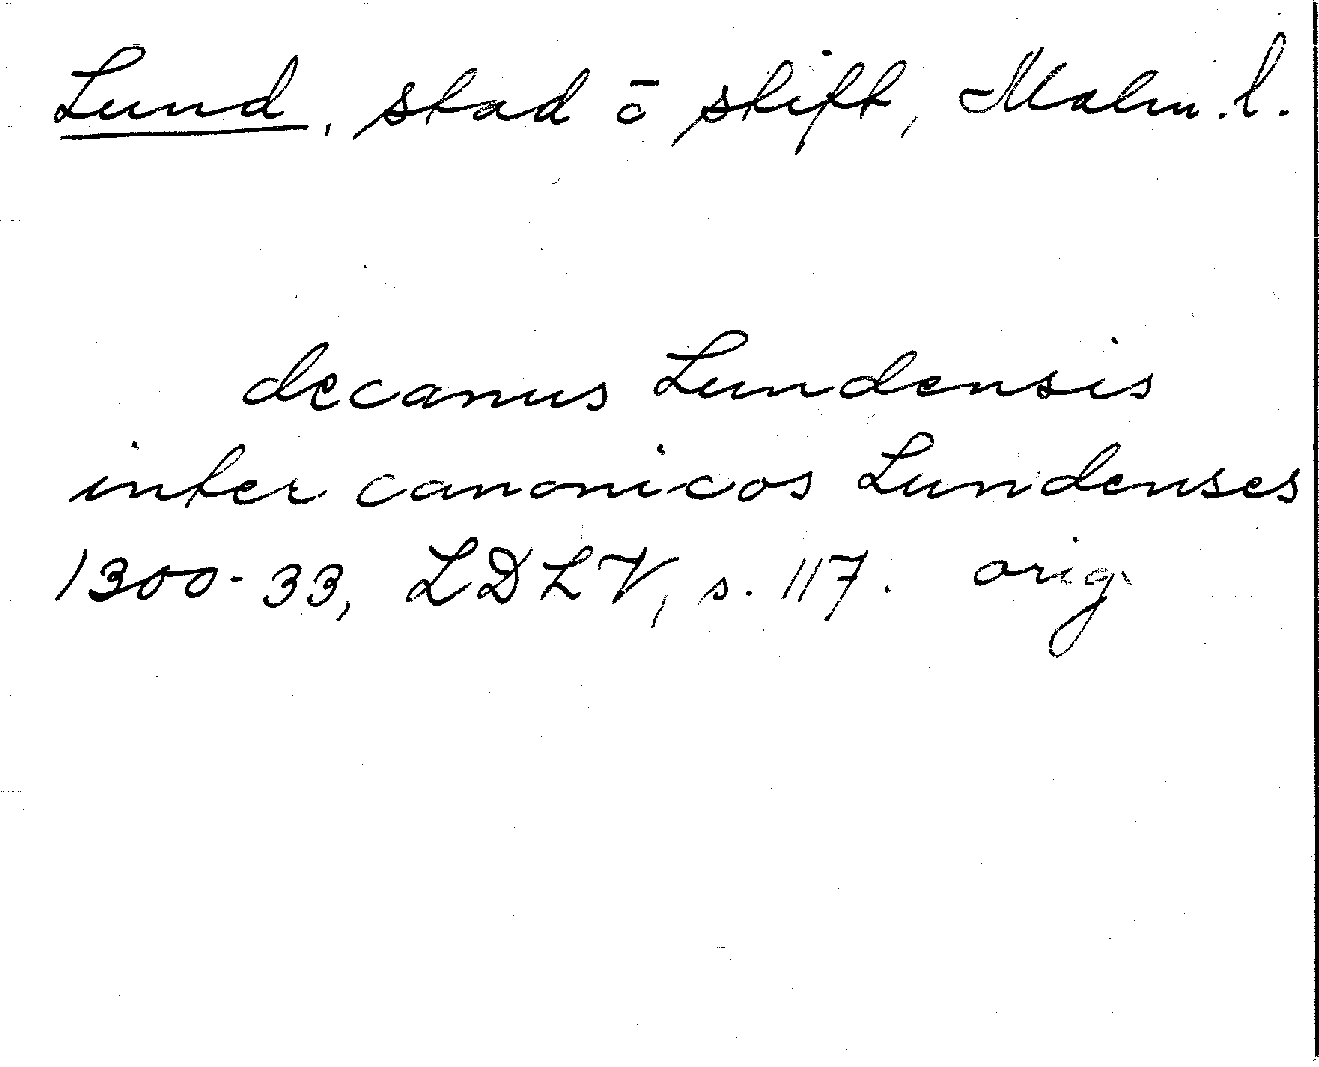 Lund, stad ō stift, Malm. l.
decanus Lundensis
inter canonicos Lundenses
1300-33, LDLV, s. 117. orig.